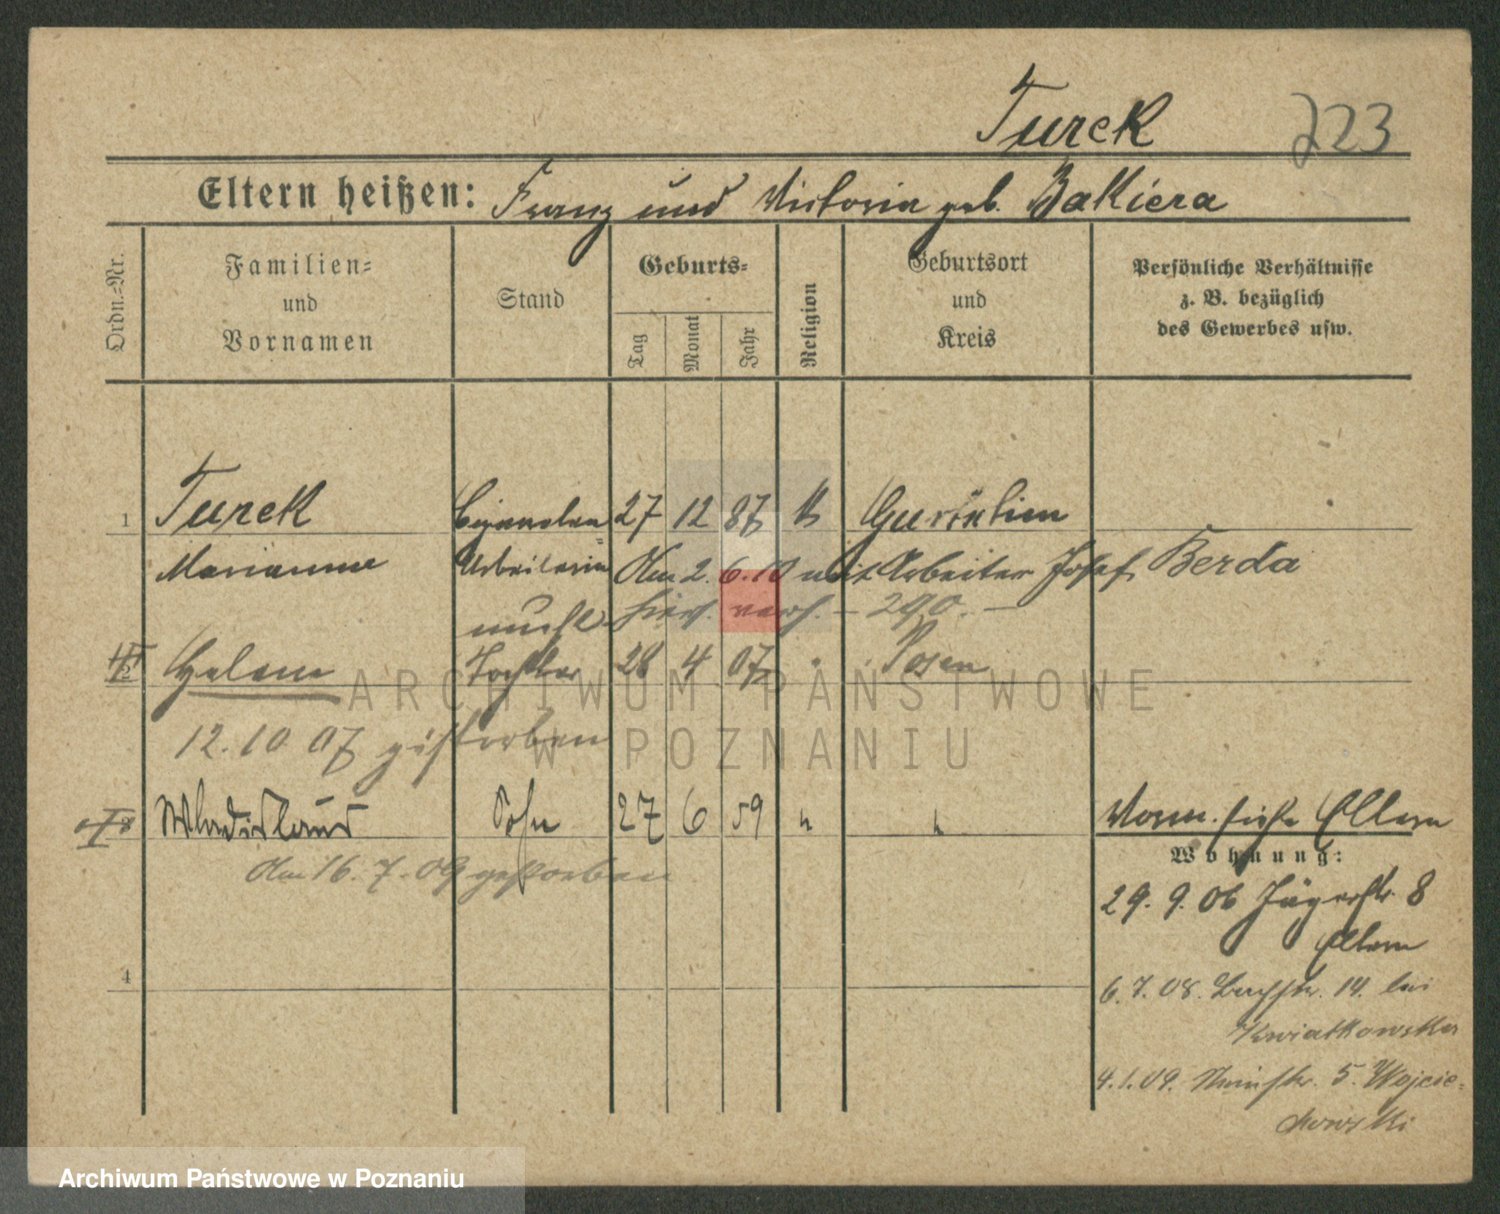 Turek 223
Eltern heißen: Franz und Victoria geb. Bakiera
Ordn.-Nr.
Familien- und Vornamen
Stand
Geburts-
Tag
Monat
Jahr
Religion
Geburtsort und Kreis
Persönliche Verhältnisse z. B. bezüglich des Gewerbes usw.
1 Turek Cigaretten 27 12 87 k
Marianne Arbeiterin Am 2. 6. 10 mit Arbeiter Josef Berda
hier verh. - 290. -
2 Helene Tochter 28 4 07 " Posen
12. 10 07 gestorben
Wladislaus Sohn 27 6 09 " "
Am 16. 7. 09 gestorben
4
Vorm. siehe Eltern
Wohnung:
29. 9. 06 Jägerstr. 8
Eltern
6. 7. 08. 14. bei
Kwiatkowska
4. 1. 09. 5. Wojcie-
chowski
ARCHIWUM PAŃSTWOWE
W POZNANIU
Archiwum Państwowe w Poznaniu